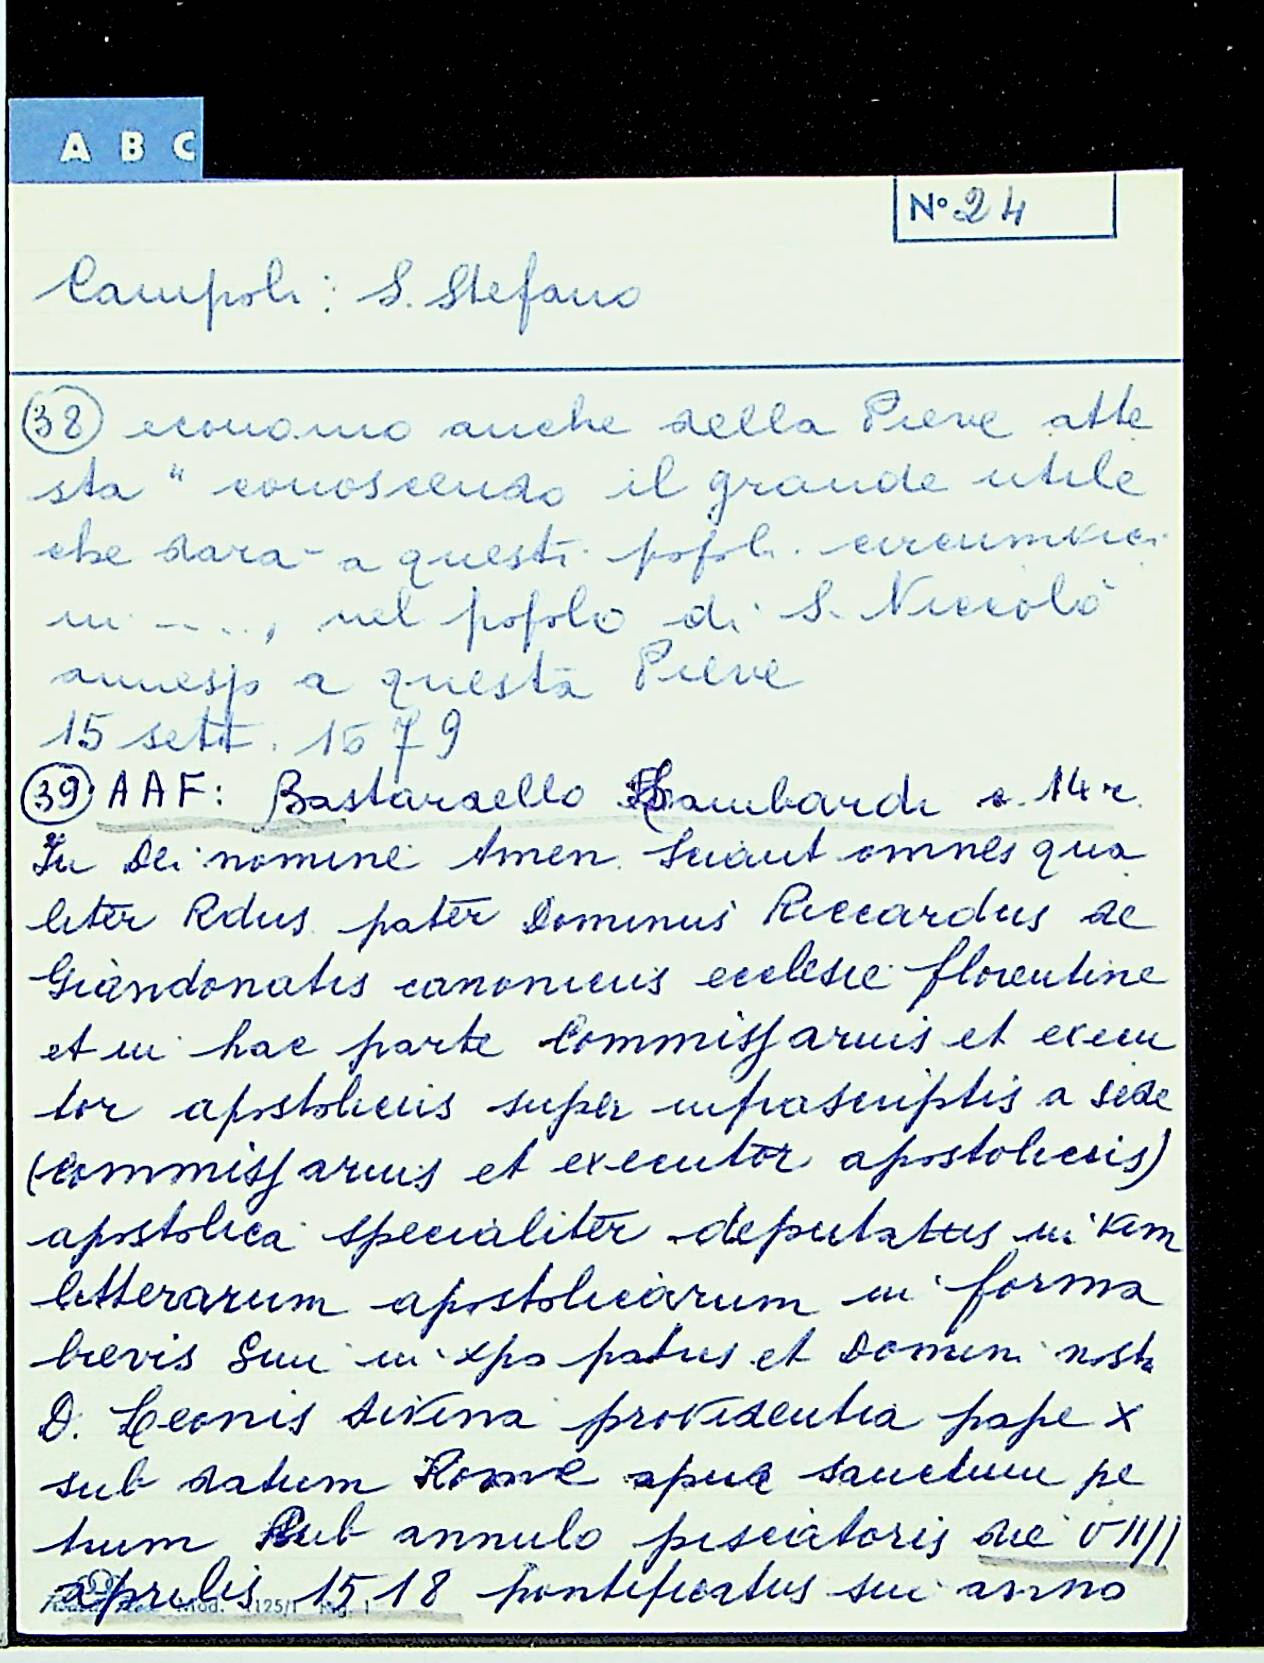 A B C
N° 24
Campoli: S. Stefano
(38) economo anche della Pieve atte
sta " conoscendo il grande utile
che darà a questi popoli circumvici
ni - - . . , nel popolo di S. Niccolò
annesso a questa Pieve
15 sett. 1679
(39) AAF: Bastardello Lambardi c. 14 r.
In Dei nomine Amen. Sciant omnes qua
liter Rdus pater Dominus Riccardus de
Giandonatis canonicus ecclesie florentine
et in hac parte Commissarius et execu
tor apostolicus super infrascriptis a sede
(commissarius et executor apostolicus)
apostolica specialiter deputatus in vim
litterarum apostolicarum in forma
brevis Smi in xpo patris et Domini nostri
D. Leonis divina providentia pape X
sub datum Rome apud sanctum pe
trum sub annulo piscatoris die VIIII
aprilis 1518 pontificatus sui anno